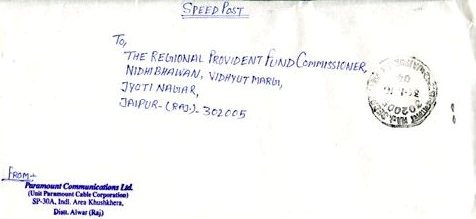 SPEED POST
To,
THE REGIONAL PROVIDENT FUND COMMISSIONER,
NIDHI BHAWAN, VIDHYUT MARG,
JYOTI NAGAR,
JAIPUR-(RAJ)- 302005
FROM-
Paramount Communications Ltd.
(Unit Paramount Cable Corporation)
SP-30A, Indl. Area Khushkhera,
Distt. Alwar (Raj)